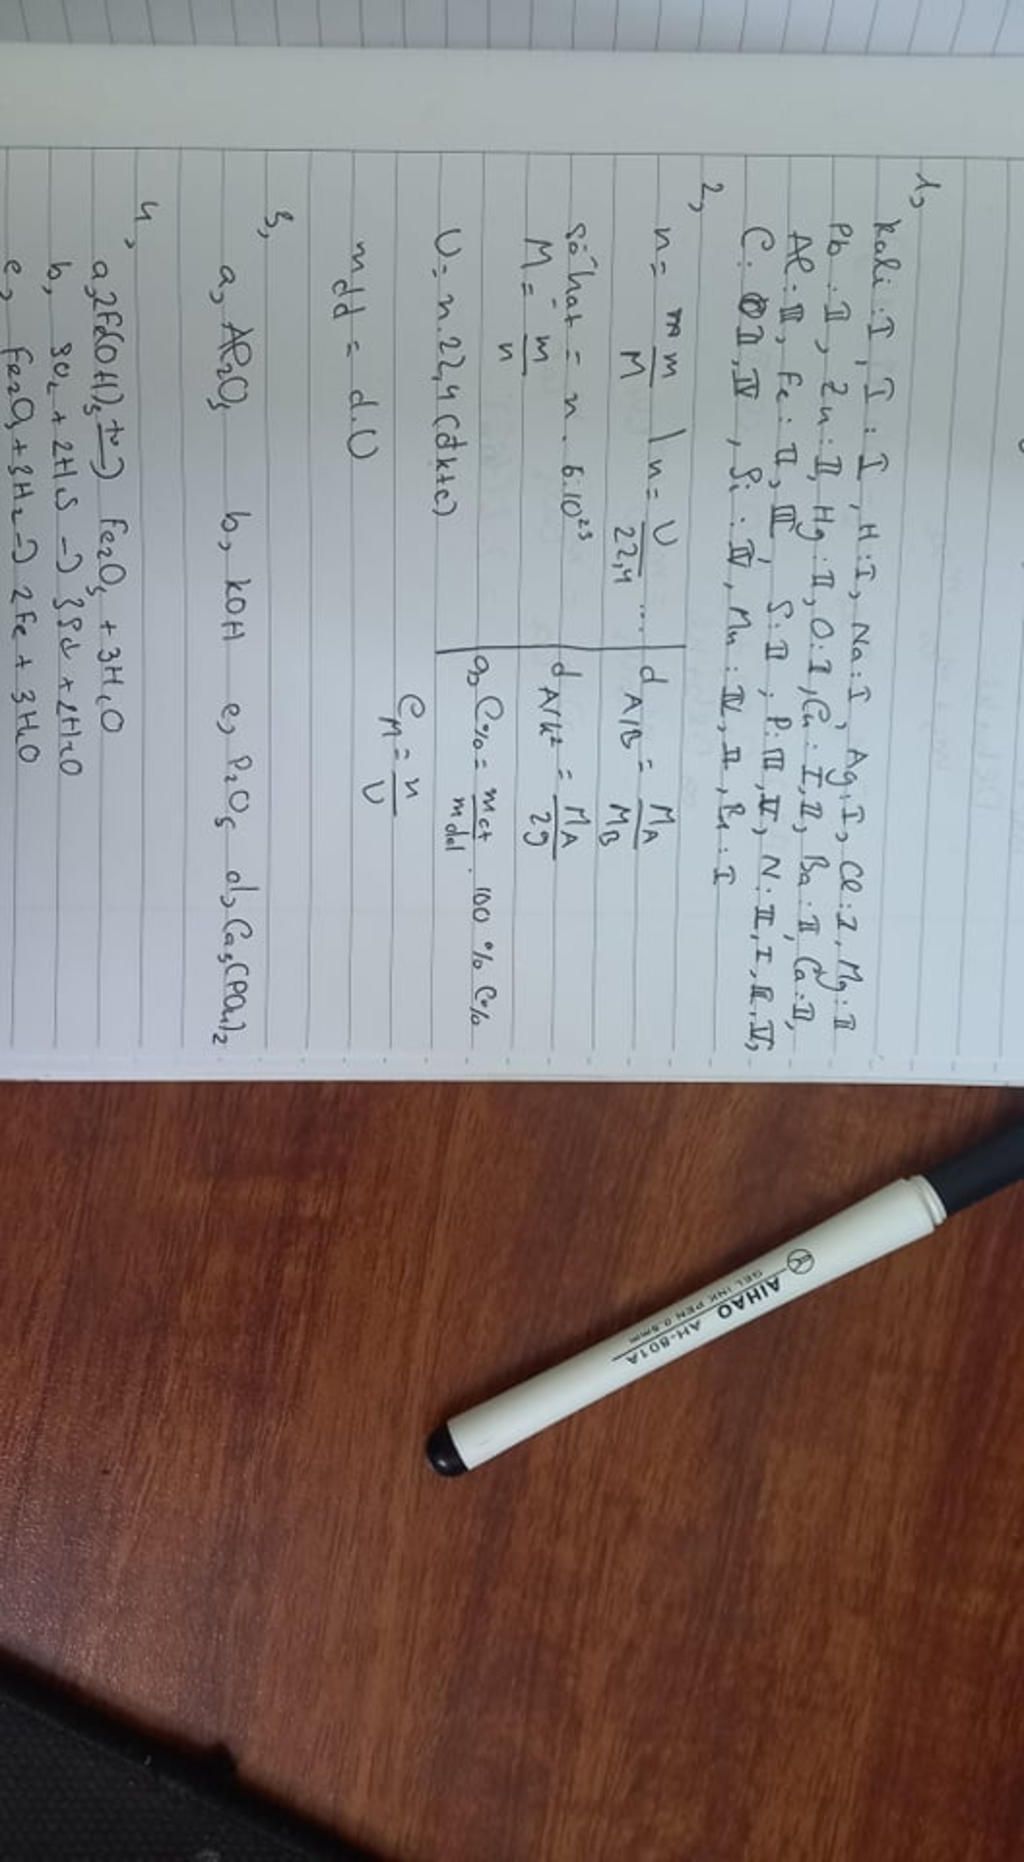 1,
Kali : I , I : I , H : I, Na : I , Ag : I, Cl : I, Mg : II
Pb : II , Zn : II, Hg : II, O : I, Cu : I, II, Ba : II, Ca : II,
Al : III, Fe : II, III, S : II ; P : III, V, N : II, I, II, IV,
C : II, IV , Si : IV, Mn : IV, II, Br : I
2,
n = m/M | n = V/22,4 ...
số hạt = n . 6.10²³
M = m/n
V = n.22,4 (đktc)
mdd = d.V
d A/B = MA/MB
d A/k² = MA/29
C% = mct/mdd . 100 % C%
CM = n/V
3,
a, Al₂O₃ b, KOH c, P₂O₅ d, Ca₃(PO₄)₂
4,
a, 2Fe(OH)₃ →(t°) Fe₂O₃ + 3H₂O
b, SO₂ + 2H₂S → 3S↓ + 2H₂O
c, Fe₂O₃ + 3H₂ → 2Fe + 3H₂O
AIHAO AH-801A
GEL INK PEN 0.5mm